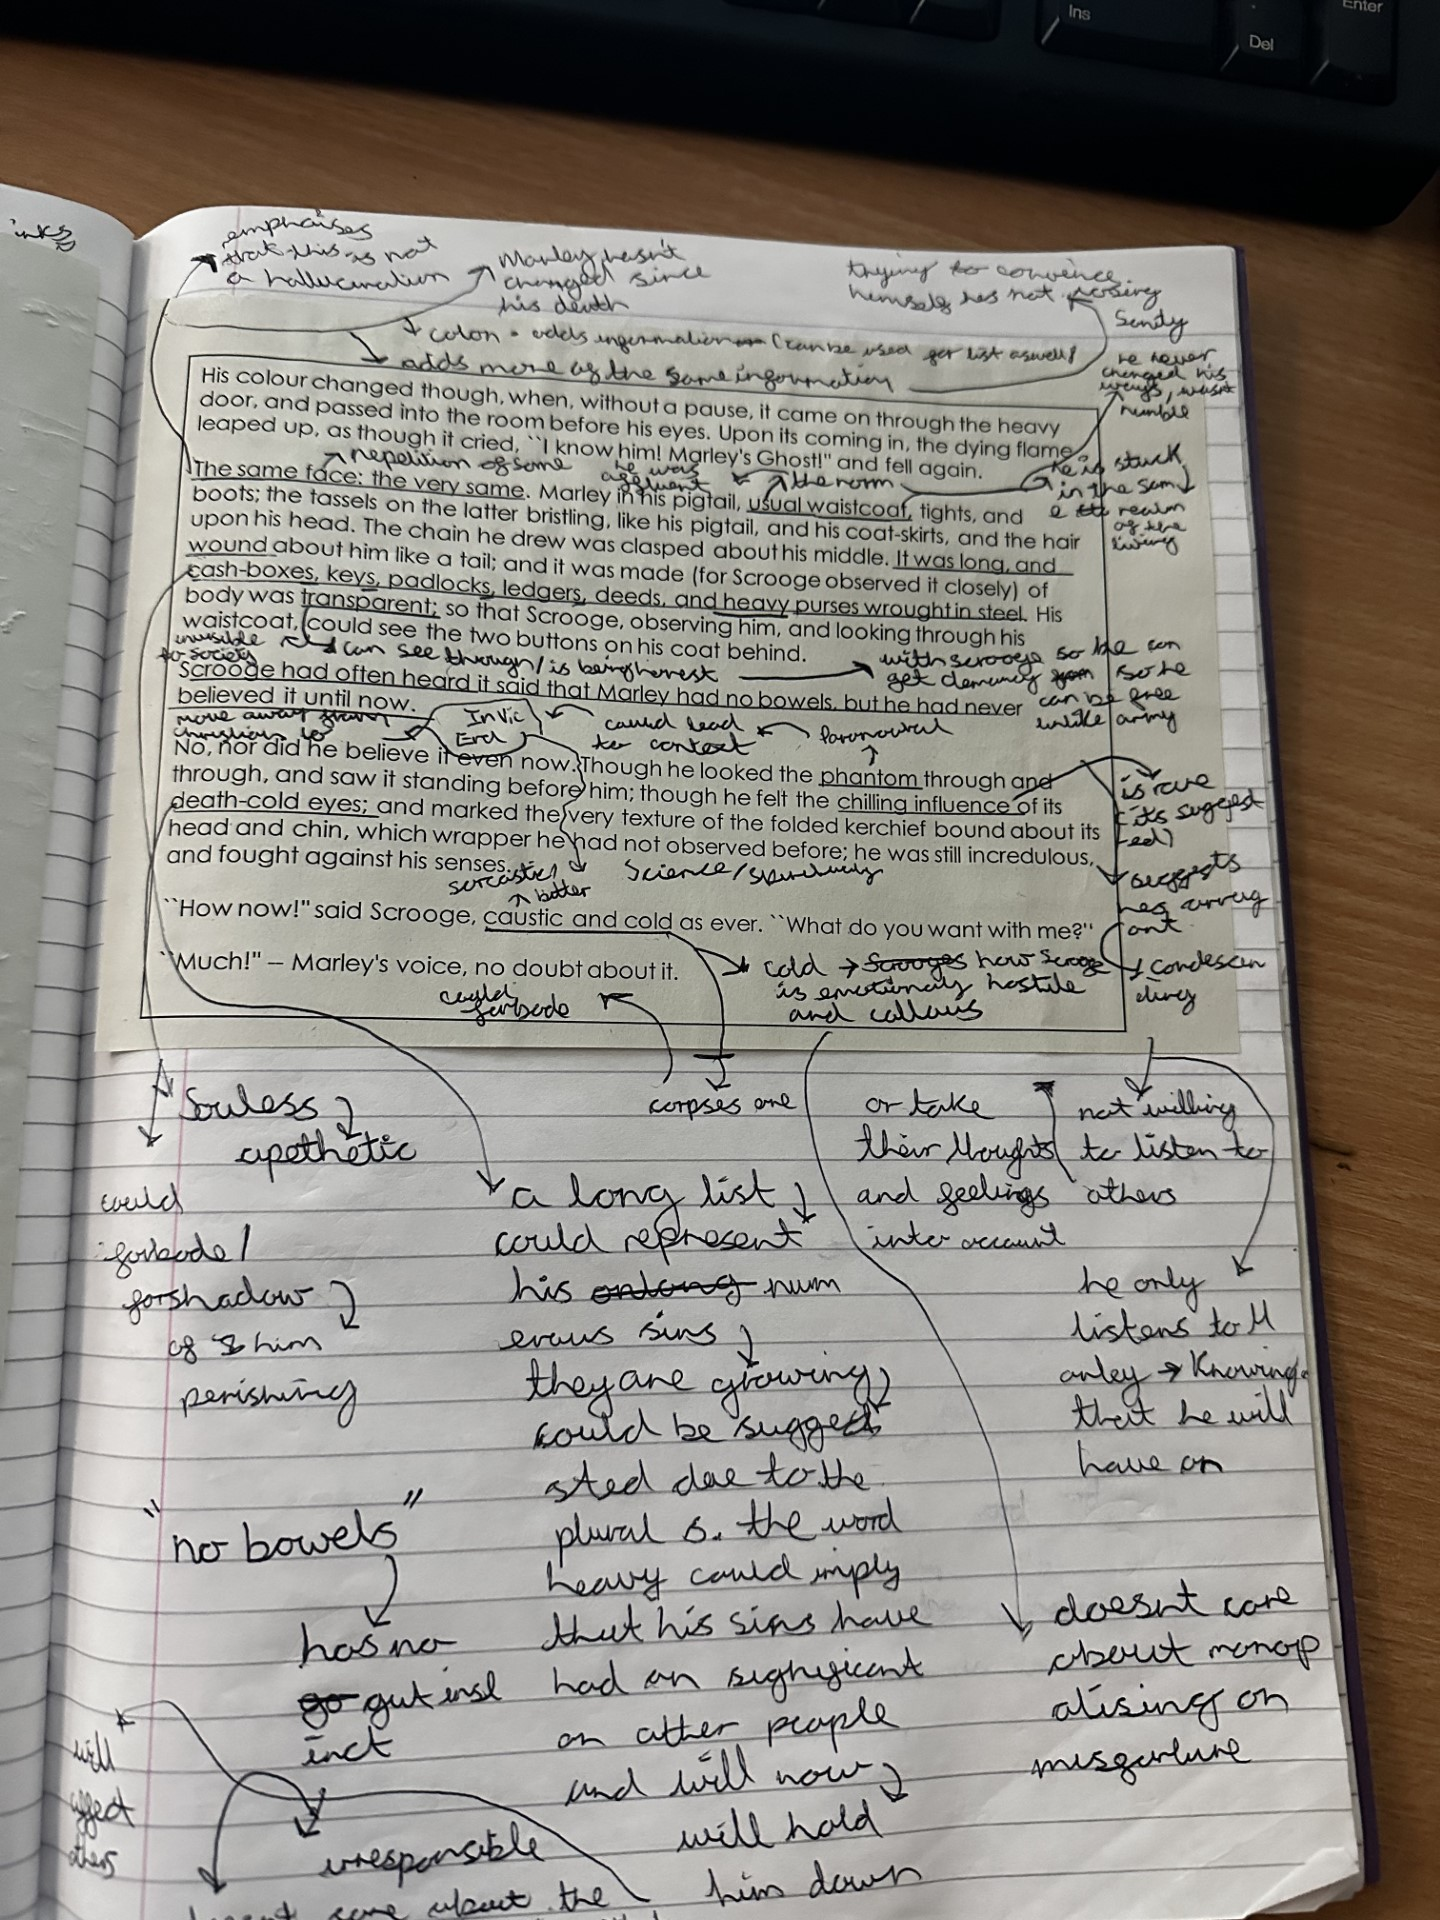 Ins
Del
Enter
inks
emphaises
that this is not
a hallucination
Marley hasn't
changed since
his death
trying to convence
himself has not
Sanity
colon = adds information (can be used for list aswell)
adds more of the same information
he never
changed his
ways, wasnt
humble
His colour changed though, when, without a pause, it came on through the heavy
door, and passed into the room before his eyes. Upon its coming in, the dying flame
leaped up, as though it cried, ``I know him! Marley's Ghost!'' and fell again.
repetition of same
he was
the norm
he is stuck
in the sam
e realm
of the
living
The same face: the very same. Marley in his pigtail, usual waistcoat, tights, and
boots; the tassels on the latter bristling, like his pigtail, and his coat-skirts, and the hair
upon his head. The chain he drew was clasped about his middle. It was long, and
wound about him like a tail; and it was made (for Scrooge observed it closely) of
cash-boxes, keys, padlocks, ledgers, deeds, and heavy purses wrought in steel. His
body was transparent; so that Scrooge, observing him, and looking through his
waistcoat, could see the two buttons on his coat behind.
invisible
to society
can see through/is being honest
with scrooge so he can
get so he
can be free
unlike
Scrooge had often heard it said that Marley had no bowels, but he had never
believed it until now.
move away from
InVic
Erd
could lead
to context
Paranoural
No, nor did he believe it even now. Though he looked the phantom through and
through, and saw it standing before him; though he felt the chilling influence of its
death-cold eyes; and marked the very texture of the folded kerchief bound about its
head and chin, which wrapper he had not observed before; he was still incredulous,
and fought against his senses.
is rare
(its suggest
ed)
sarcastic/
bitter
Science/
suggests
hes arrog
ant
condescen
ding
``How now!'' said Scrooge, caustic and cold as ever. ``What do you want with me?''
``Much!'' – Marley's voice, no doubt about it.
cold → Scrooges how Scrooge
is emotionaly hostile
and callous
could
forbode
Souless
apethetic
corpses are
or take
their thoughts
and feelings
into account
not willing
to listen to
others
could
forbode/
forshadow
of him
perishing
a long list
could represent
his num
erous sins
they are growing
could be sugge
sted due to the
plural s. the word
heavy could imply
that his sins have
had an sighigicant
on other people
and will now
will hold
him down
he only
listens to M
arley → Knowing
that he will
have an
"no bowels"
has no
go gut inst
inct
irresponsible
will
affect
others
doesnt care
about monop
alising on
misgurlune
about the